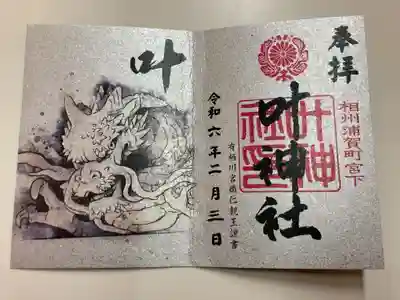 奉拝
相州浦賀町宮下
叶神社
叶神社印
有栖川宮幟仁親王謹書
令和六年二月三日
叶